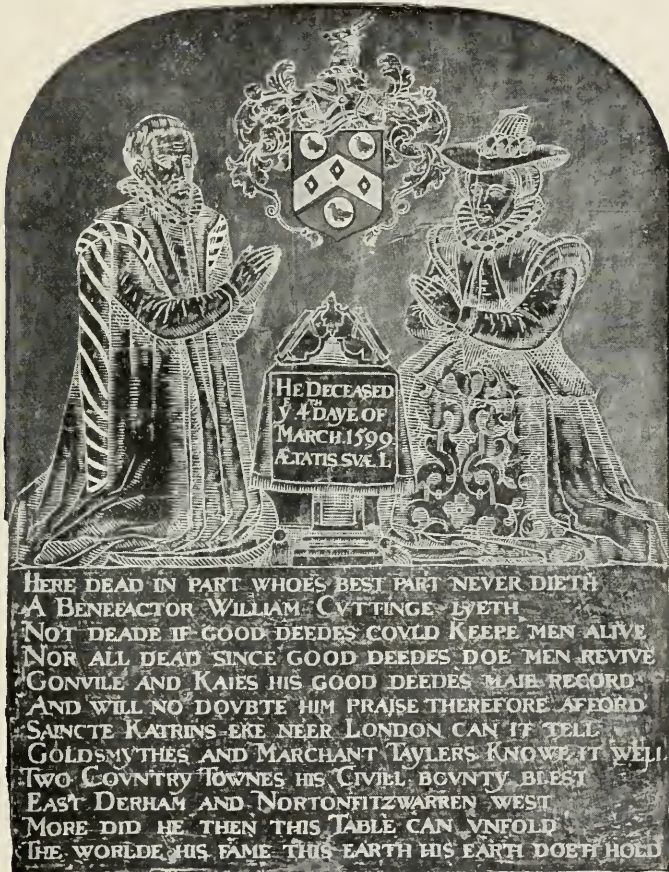 HE DECEASED
Ẏ 4TH DAYE OF
MARCH.1599.
ÆTATIS SVÆ L
HERE DEAD IN PART WHOES BEST PART NEVER DIETH
A BENEFACTOR WILLIAM CVTTINGE LYETH
NOT DEADE IF GOOD DEEDES COVLD KEEPE MEN ALIVE
NOR ALL DEAD SINCE GOOD DEEDES DOE MEN REVIVE
GONVILE AND KAIES HIS GOOD DEEDES MAIE RECORD
AND WILL NO DOVBTE HIM PRAISE THEREFORE AFFORD
SAINCTE KATRINS EKE NEER LONDON CAN IT TELL
GOLDSMYTHES AND MARCHANT TAYLERS KNOWE IT WELL
TWO COVNTRY TOWNES HIS CIVILL BOVNTY BLEST
EAST DERHAM AND NORTONFITZWARREN WEST
MORE DID HE THEN THIS TABLE CAN VNFOLD
THE WORLDE HIS FAME THIS EARTH HIS EARTH DOETH HOLD